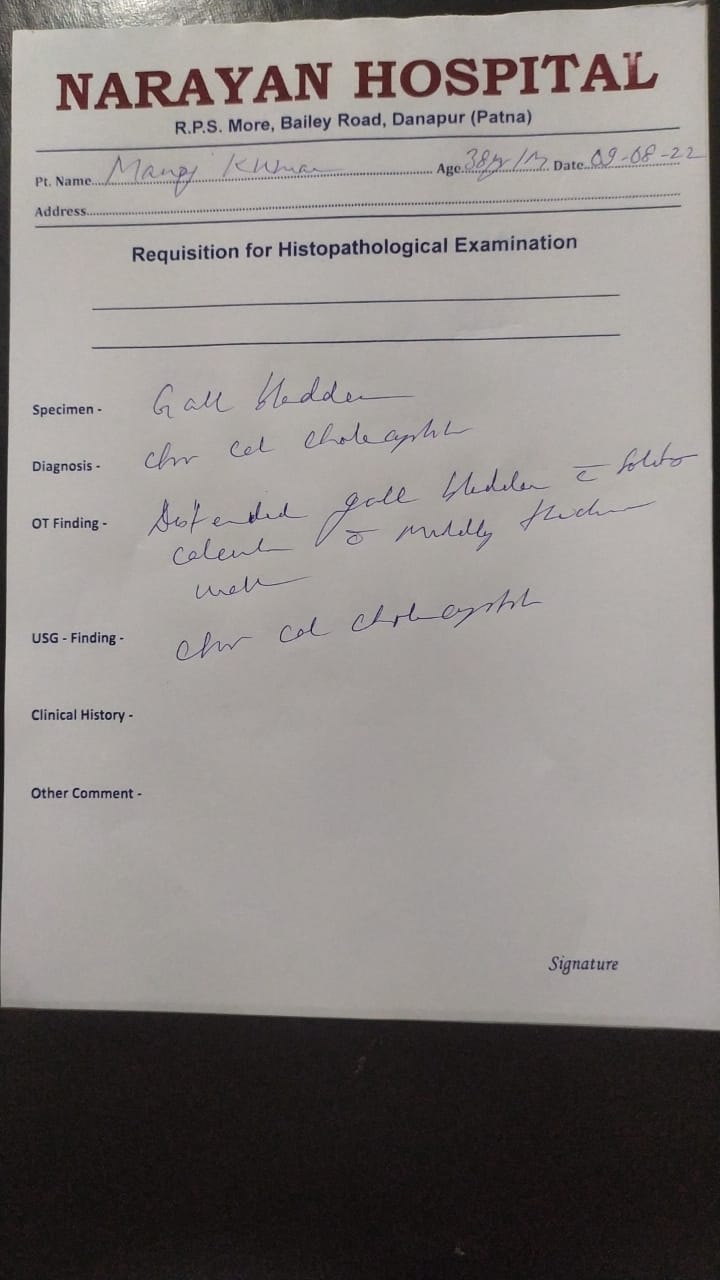 NARAYAN HOSPITAL
R.P.S. More, Bailey Road, Danapur (Patna)
Pt. Name... Manoj Kumar Age 38y/M Date 09-08-22
Address
Requisition for Histopathological Examination
Specimen - Gall bladder
Diagnosis - Chr cal
OT Finding - Distended gall bladder c̄
c̄ mildly
wall
USG - Finding - Chr cal
Clinical History -
Other Comment -
Signature